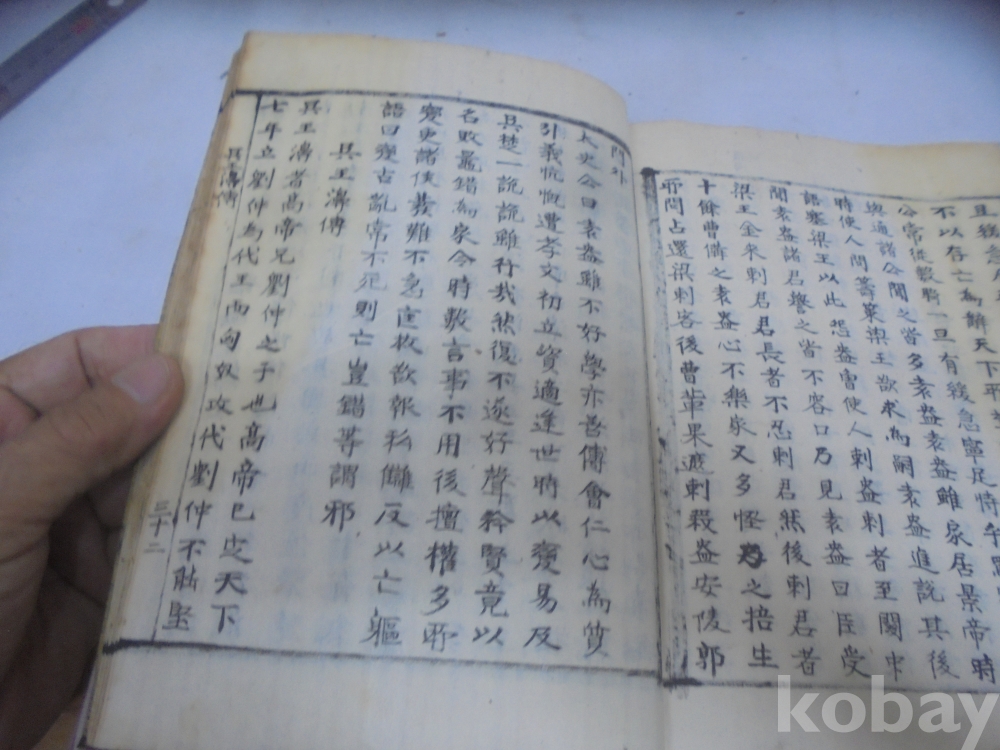 且緩急
不以存亡為辭天下
公常從數騎一旦有緩急寧足恃乎罵
與通諸公聞之皆多袁盎袁盎雖家居景帝時
時使人問籌策梁王欲求為嗣袁盎進說其後
語塞梁王以此怨盎曾使人刺盎刺者至關中
聞袁盎諸君譽之皆不容口乃見袁盎曰臣受
梁王金來刺君君長者不忍刺君然後刺君者
十餘曹備之袁盎心不樂家又多怪乃之掊生
所問占還梁刺客後曹輩果遮刺殺盎安陵郭
門外
太史公曰袁盎雖不好學亦善傅會仁心為質
引義忼慨遭孝文初立資適逢世時以變易及
吳楚一說說雖行哉然復不遂好聲矜賢竟以
名敗鼂錯為家令時數言事不用後擅權多所
變更諸侯發難不急匡救欲報私讎反以亡軀
語曰變古亂常不死則亡豈錯等謂邪
吳王濞傳
吳王濞者高帝兄劉仲之子也高帝已定天下
七年立劉仲為代王而匈奴攻代劉仲不能堅
吳王濞傳
三十二
kobay